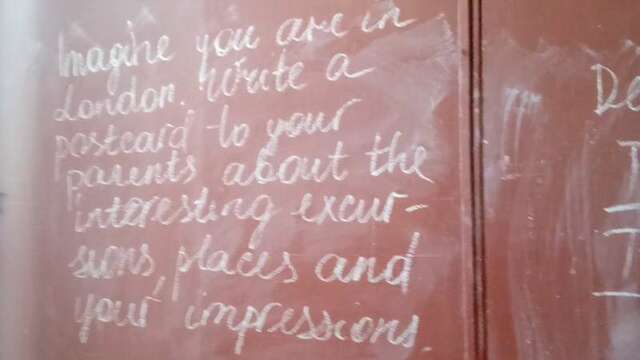 Imagine you are in
London. Write a
postcard to your
parents about the
interesting excur-
sions, places and
your impressions.
De